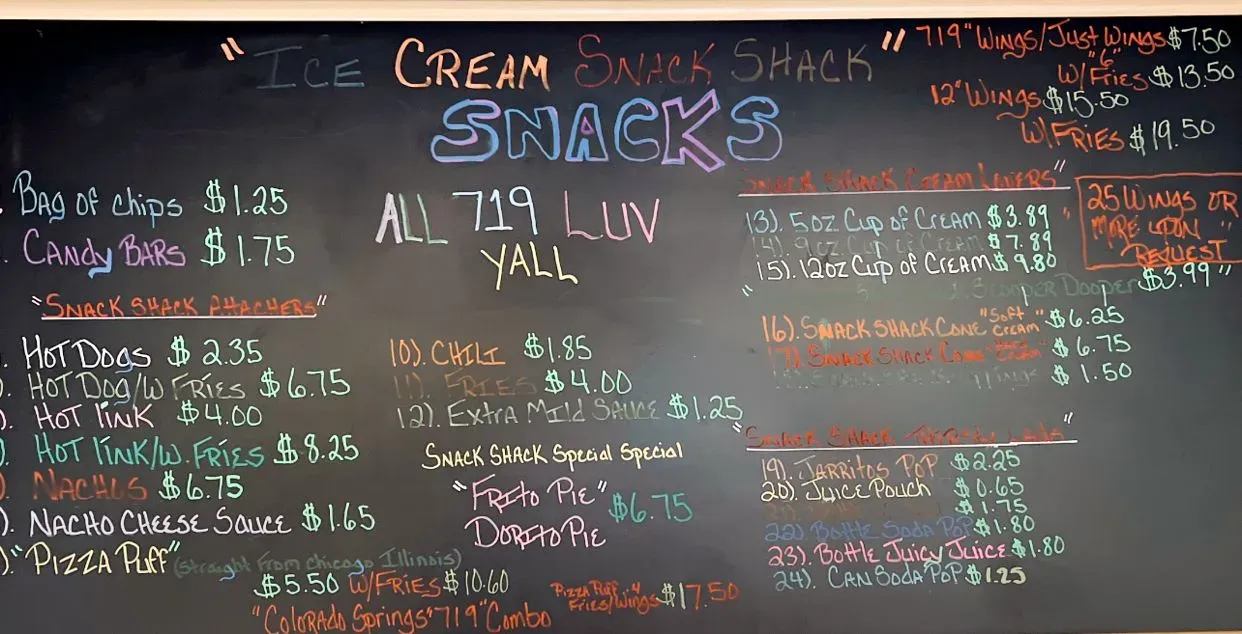 "ICE CREAM SNACK SHACK"
SNACKS
ALL 719 LUV
YALL
719" Wings/Just Wings $7.50
"6"
W/Fries $13.50
12" Wings $15.50
W/FRIES $19.50
25 WINGS OR
MORE UPON
REQUEST
. Bag of chips $1.25
. CANdy BARS $1.75
"SNACK SHACK AttACHERS"
. HOT DOGS $2.35
). HOT DOG/W FRIES $6.75
). HOT liNK $4.00
). HOT liNK/W. FRiES $8.25
). NACHOS $6.75
). NACHO CHEESE SAUCE $1.65
). "PIZZA PUFF" (Straight From Chicago Illinois)
$5.50 W/FRIES $10.60
"COLORADO SpRiNgS" 719" COMbO
Pizza Puff
Fries/Wings $17.50
10). CHILI $1.85
11). FRIES $4.00
12). EXTRA MILD SAUCE $1.25
SNACK SHACK Special Special
"FRITO PIE"
$6.75
DORITO PIE
SNACK SHACK CREAM LOVERS"
13). 5oz Cup of CREAM $3.89
14). 9oz Cup of CREAM $7.89
15). 12oz Cup of CREAM $9.80
" Scooper Dooper $3.99"
16). SNACK SHACK CONE "Soft Cream" $6.25
17). SNACK SHACK CONE $6.75
$1.50
"SNACK SHACK
19). JARRITOS POP $2.25
20). JUICE POUCH $0.65
$1.75
22). BOttle SODA POP $1.80
23). BOttle JUICY JUICE $1.80
24). CAN SODA POP $1.25